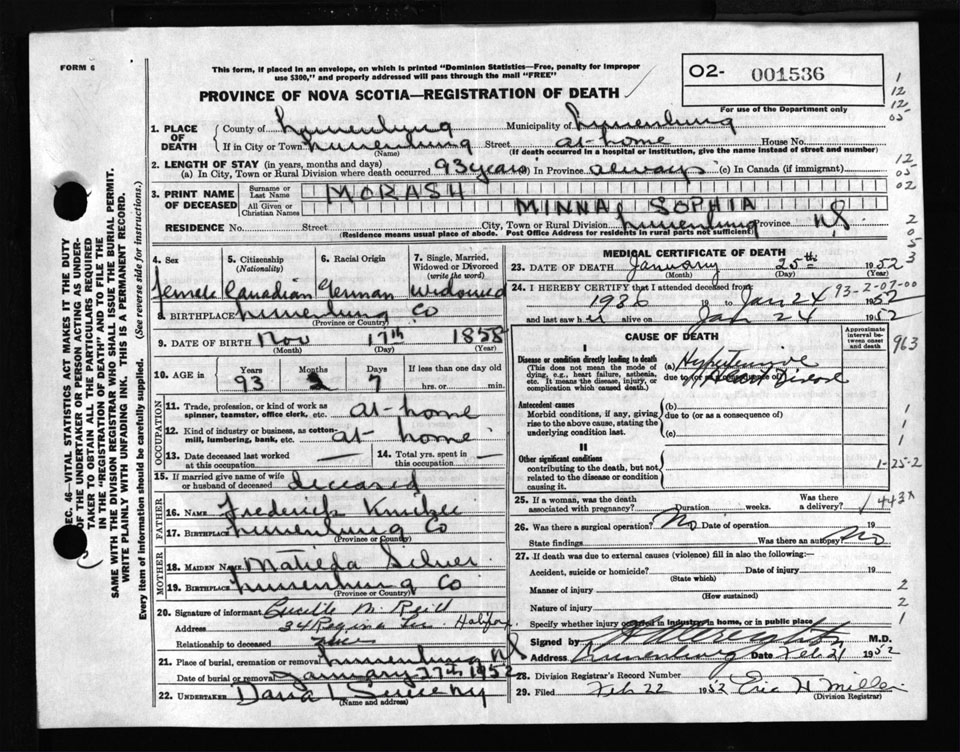 FORM 6
This form, if placed in an envelope, on which is printed "Dominion Statistics—Free, penalty for improper
use $300," and properly addressed will pass through the mail "FREE"
PROVINCE OF NOVA SCOTIA—REGISTRATION OF DEATH
02- 001536
For use of the Department only
1
12
12
05
1. PLACE OF DEATH
County of Lunenburg Municipality of Lunenburg
If in City or Town Lunenburg Street at home House No.
(Name) (If death occurred in a hospital or institution, give the name instead of street and number)
2. LENGTH OF STAY (in years, months and days)
(a) In City, Town or Rural Division where death occurred 93 years (b) In Province always (c) In Canada (if immigrant)
12
05
02
3. PRINT NAME OF DECEASED
Surname or Last Name MORASH
All Given or Christian Names MINNA SOPHIA
RESIDENCE No. Street City, Town or Rural Division Lunenburg Province NS
(Residence means usual place of abode. Post Office Address for residents in rural parts not sufficient)
2
0
5
3
4. Sex 5. Citizenship (Nationality) 6. Racial Origin 7. Single, Married, Widowed or Divorced (write the word)
female Canadian German widowed
8. BIRTHPLACE Lunenburg Co
(Province or Country)
9. DATE OF BIRTH Nov 17th 1858
(Month) (Day) (Year)
10. AGE in Years Months Days If less than one day old
93 2 7 hrs. or min.
OCCUPATION
11. Trade, profession, or kind of work as spinner, teamster, office clerk, etc. at-home
12. Kind of industry or business, as cotton-mill, lumbering, bank, etc. at home
13. Date deceased last worked at this occupation — 14. Total yrs. spent in this occupation —
15. If married give name of wife or husband of deceased deceased
FATHER
16. NAME Frederick
17. BIRTHPLACE Lunenburg Co
(Province or Country)
MOTHER
18. MAIDEN NAME Matilda Silver
19. BIRTHPLACE Lunenburg Co
(Province or Country)
20. Signature of informant Lucille M. Reid
Address 34 Regina Ter. Halifax
Relationship to deceased
21. Place of burial, cremation or removal Lunenburg NS
Date of burial or removal January 27th 1952
22. UNDERTAKER Sweeny
(Name and address)
MEDICAL CERTIFICATE OF DEATH
23. DATE OF DEATH January 25th 1952
(Month) (Day) (Year)
24. I HEREBY CERTIFY that I attended deceased from
1936 19 to Jan 24 1952
93-2-07-00
and last saw her alive on Jan 24 1952
CAUSE OF DEATH
Approximate interval between onset and death
963
I
Disease or condition directly leading to death
(This does not mean the mode of dying, e.g., heart failure, asthenia, etc. It means the disease, injury, or complication which caused death.)
(a) Hypertensive
due to (or as a consequence of) Heart Disease
Antecedent causes
Morbid conditions, if any, giving rise to the above cause, stating the underlying condition last.
(b)
due to (or as a consequence of)
(c)
1
1
II
Other significant conditions
contributing to the death, but not related to the disease or condition causing it.
1-25-2
25. If a woman, was the death associated with pregnancy? Duration weeks. Was there a delivery?
443X
26. Was there a surgical operation? No Date of operation 19
State findings Was there an autopsy? No
27. If death was due to external causes (violence) fill in also the following:—
Accident, suicide or homicide? Date of injury 19
(State which)
Manner of injury
(How sustained)
Nature of injury
Specify whether injury occurred in industry, in home, or in public place
2
2
1
Signed by M.D.
Address Lunenburg Date Feb 21 1952
28. Division Registrar's Record Number
29. Filed Feb 22 1952 Eric H. Miller
(Division Registrar)
SEC. 46—VITAL STATISTICS ACT MAKES IT THE DUTY
OF THE UNDERTAKER OR PERSON ACTING AS UNDER-
TAKER TO OBTAIN ALL THE PARTICULARS REQUIRED
IN THE "REGISTRATION OF DEATH" AND TO FILE THE
SAME WITH THE DIVISION REGISTRAR WHO SHALL ISSUE THE BURIAL PERMIT.
WRITE PLAINLY WITH UNFADING INK. THIS IS A PERMANENT RECORD.
Every item of information should be carefully supplied. (See reverse side for instructions.)